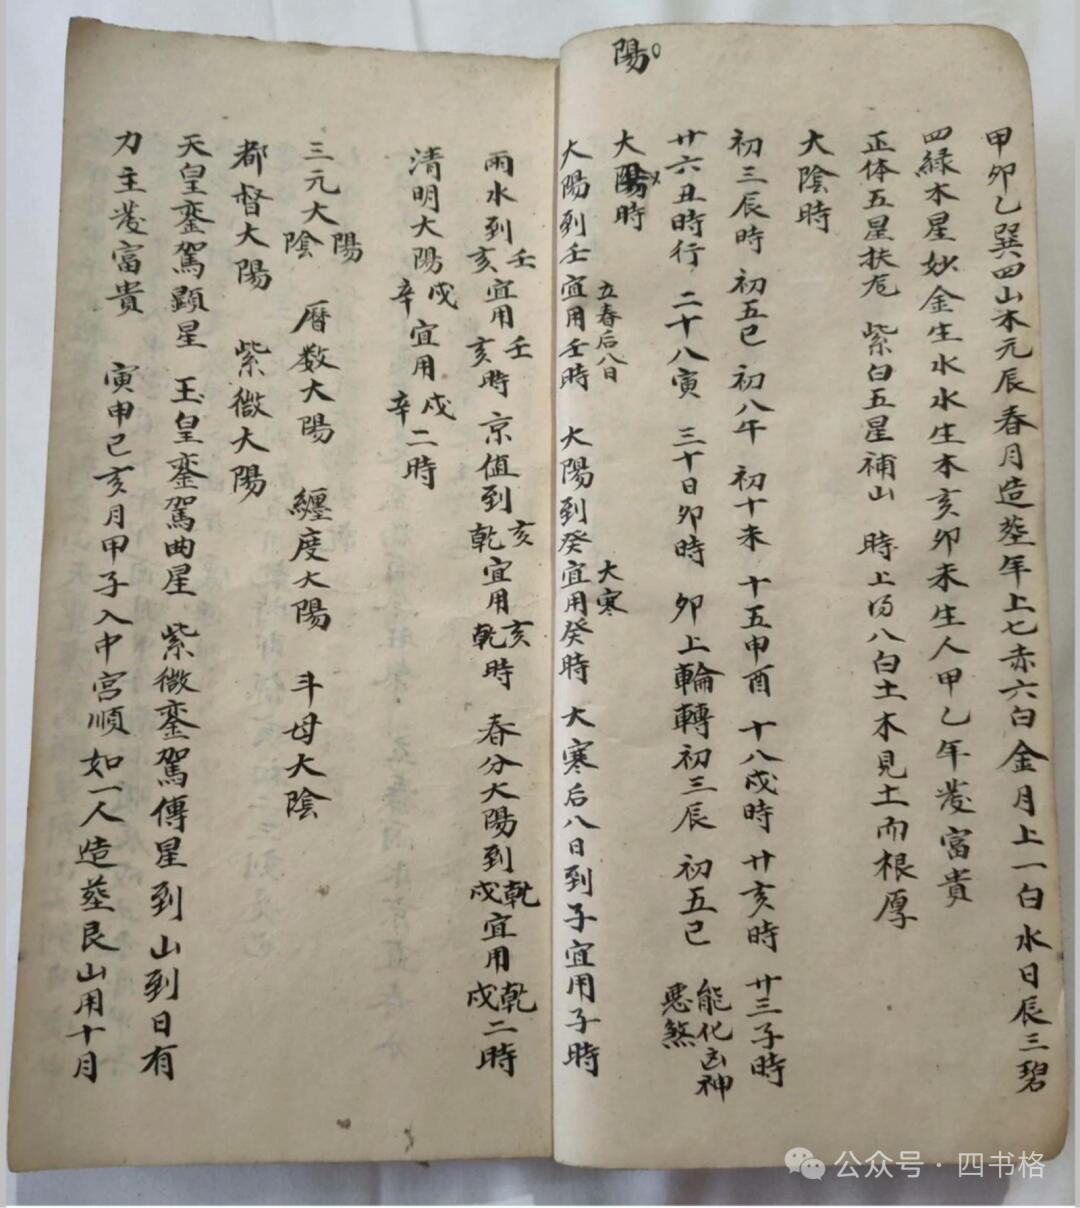 陽
甲卯乙巽四山木元辰春月造葬年上七赤六白金月上一白水日辰三碧
四緑木星妙金生水水生木亥卯未生人甲乙年發富貴
正体五星扶危 紫白五星補山 時上得八白土木見土而根厚
大陰時
初三辰時 初五巳 初八午 初十未 十五申酉 十八戌時 廿亥時 廿三子時
廿六丑時行 二十八寅 三十日卯時 卯上輪轉初三辰 初五巳 能化凶神惡煞
大陽時
大陽到壬宜用壬時 立春后八日 大陽到癸宜用癸時 大寒 大寒后八日到子宜用子時
雨水到壬亥宜用壬亥時 京值到亥乾宜用亥乾時 春分大陽到乾戌宜用乾戌二時
清明大陽戌辛宜用戌辛二時
三元大陽陰 曆数大陽 纏度大陽 斗母大陰
都督大陽 紫微大陽
天皇鑾駕顕星 玉皇鑾駕曲星 紫微鑾駕傳星到山到日有
力主發富貴 寅申巳亥月甲子入中宮順如一人造葬艮山用十月
公众号·四书格